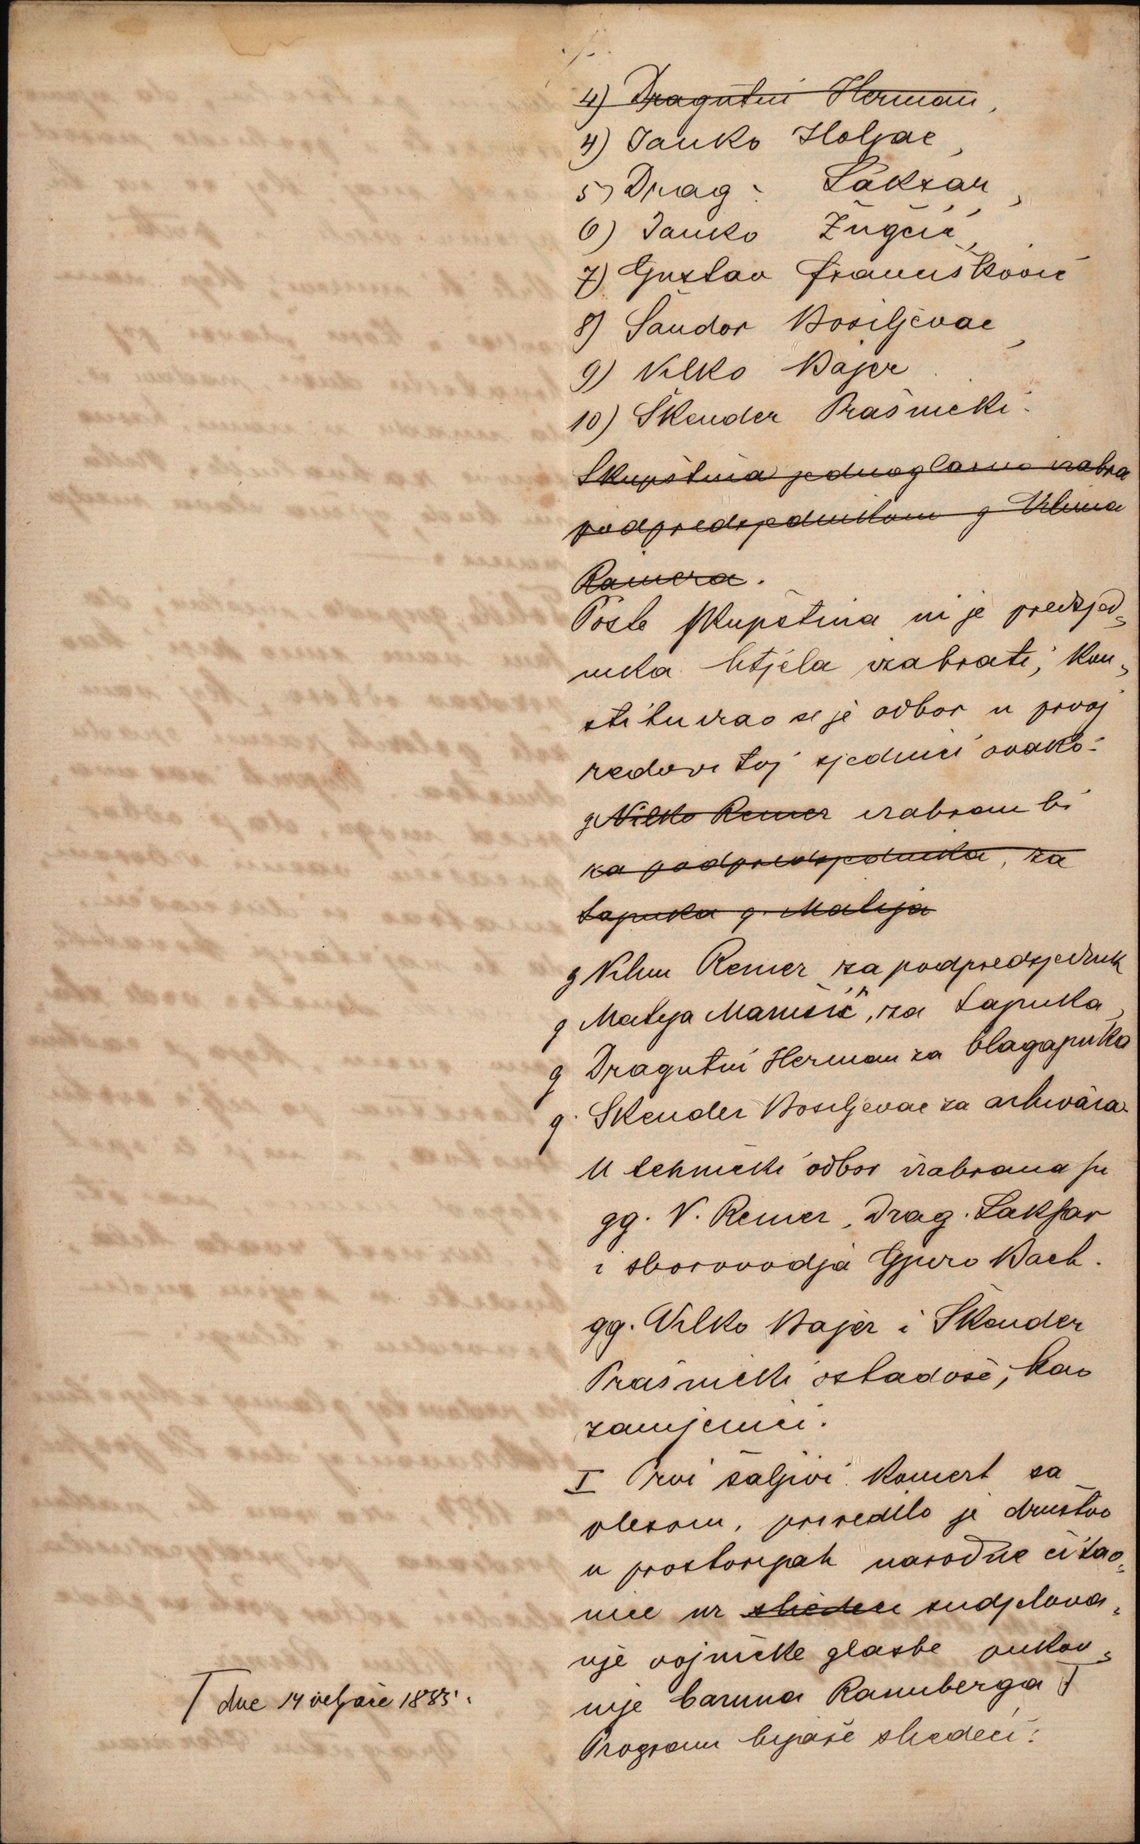 4) Dragutin Herman,
4) Janko Holjac,
5) Drag: Lakšar,
6) Janko Žugčić,
7) Gustav Franišković
8) Šandor Bosiljevac,
9) Vilko Bajer
10) Škender Prašnički.
Skupština jednoglasno izabra
podpredsjednikom g Vilima
Raimera.
Pošto skupština nije predsjed„
nika htjela izabrati, kon„
stituirao se je odbor u prvoj
redovitoj sjednici ovako:
g Vilko Remer izabran bi
za podpredsjednika, za
tajnika g. Matija
g Vilim Remer za podpredsjednik
g Matija Marušić, za tajnika,
g Dragutin Herman za blagajnika
g. Skender Bosiljevac za arhivara.
U tehnički odbor izabrana su
gg. V. Remer, Drag. Lakšar
i sborovodja Gjuro Bach.
gg. Vilko Bajer i Škender
Prašnički ostadoše, kao
zamjenici.
I Prvi šaljivi koncert sa
plesom, priredilo je društvo
u prostorijah narodne čitao„
nice uz sliedeće sudjelova„
nje vojničke glasbe pukov„
nije baruna Ramberga T
T dne 14 veljače 1885.
Program bijaše sliedeći: